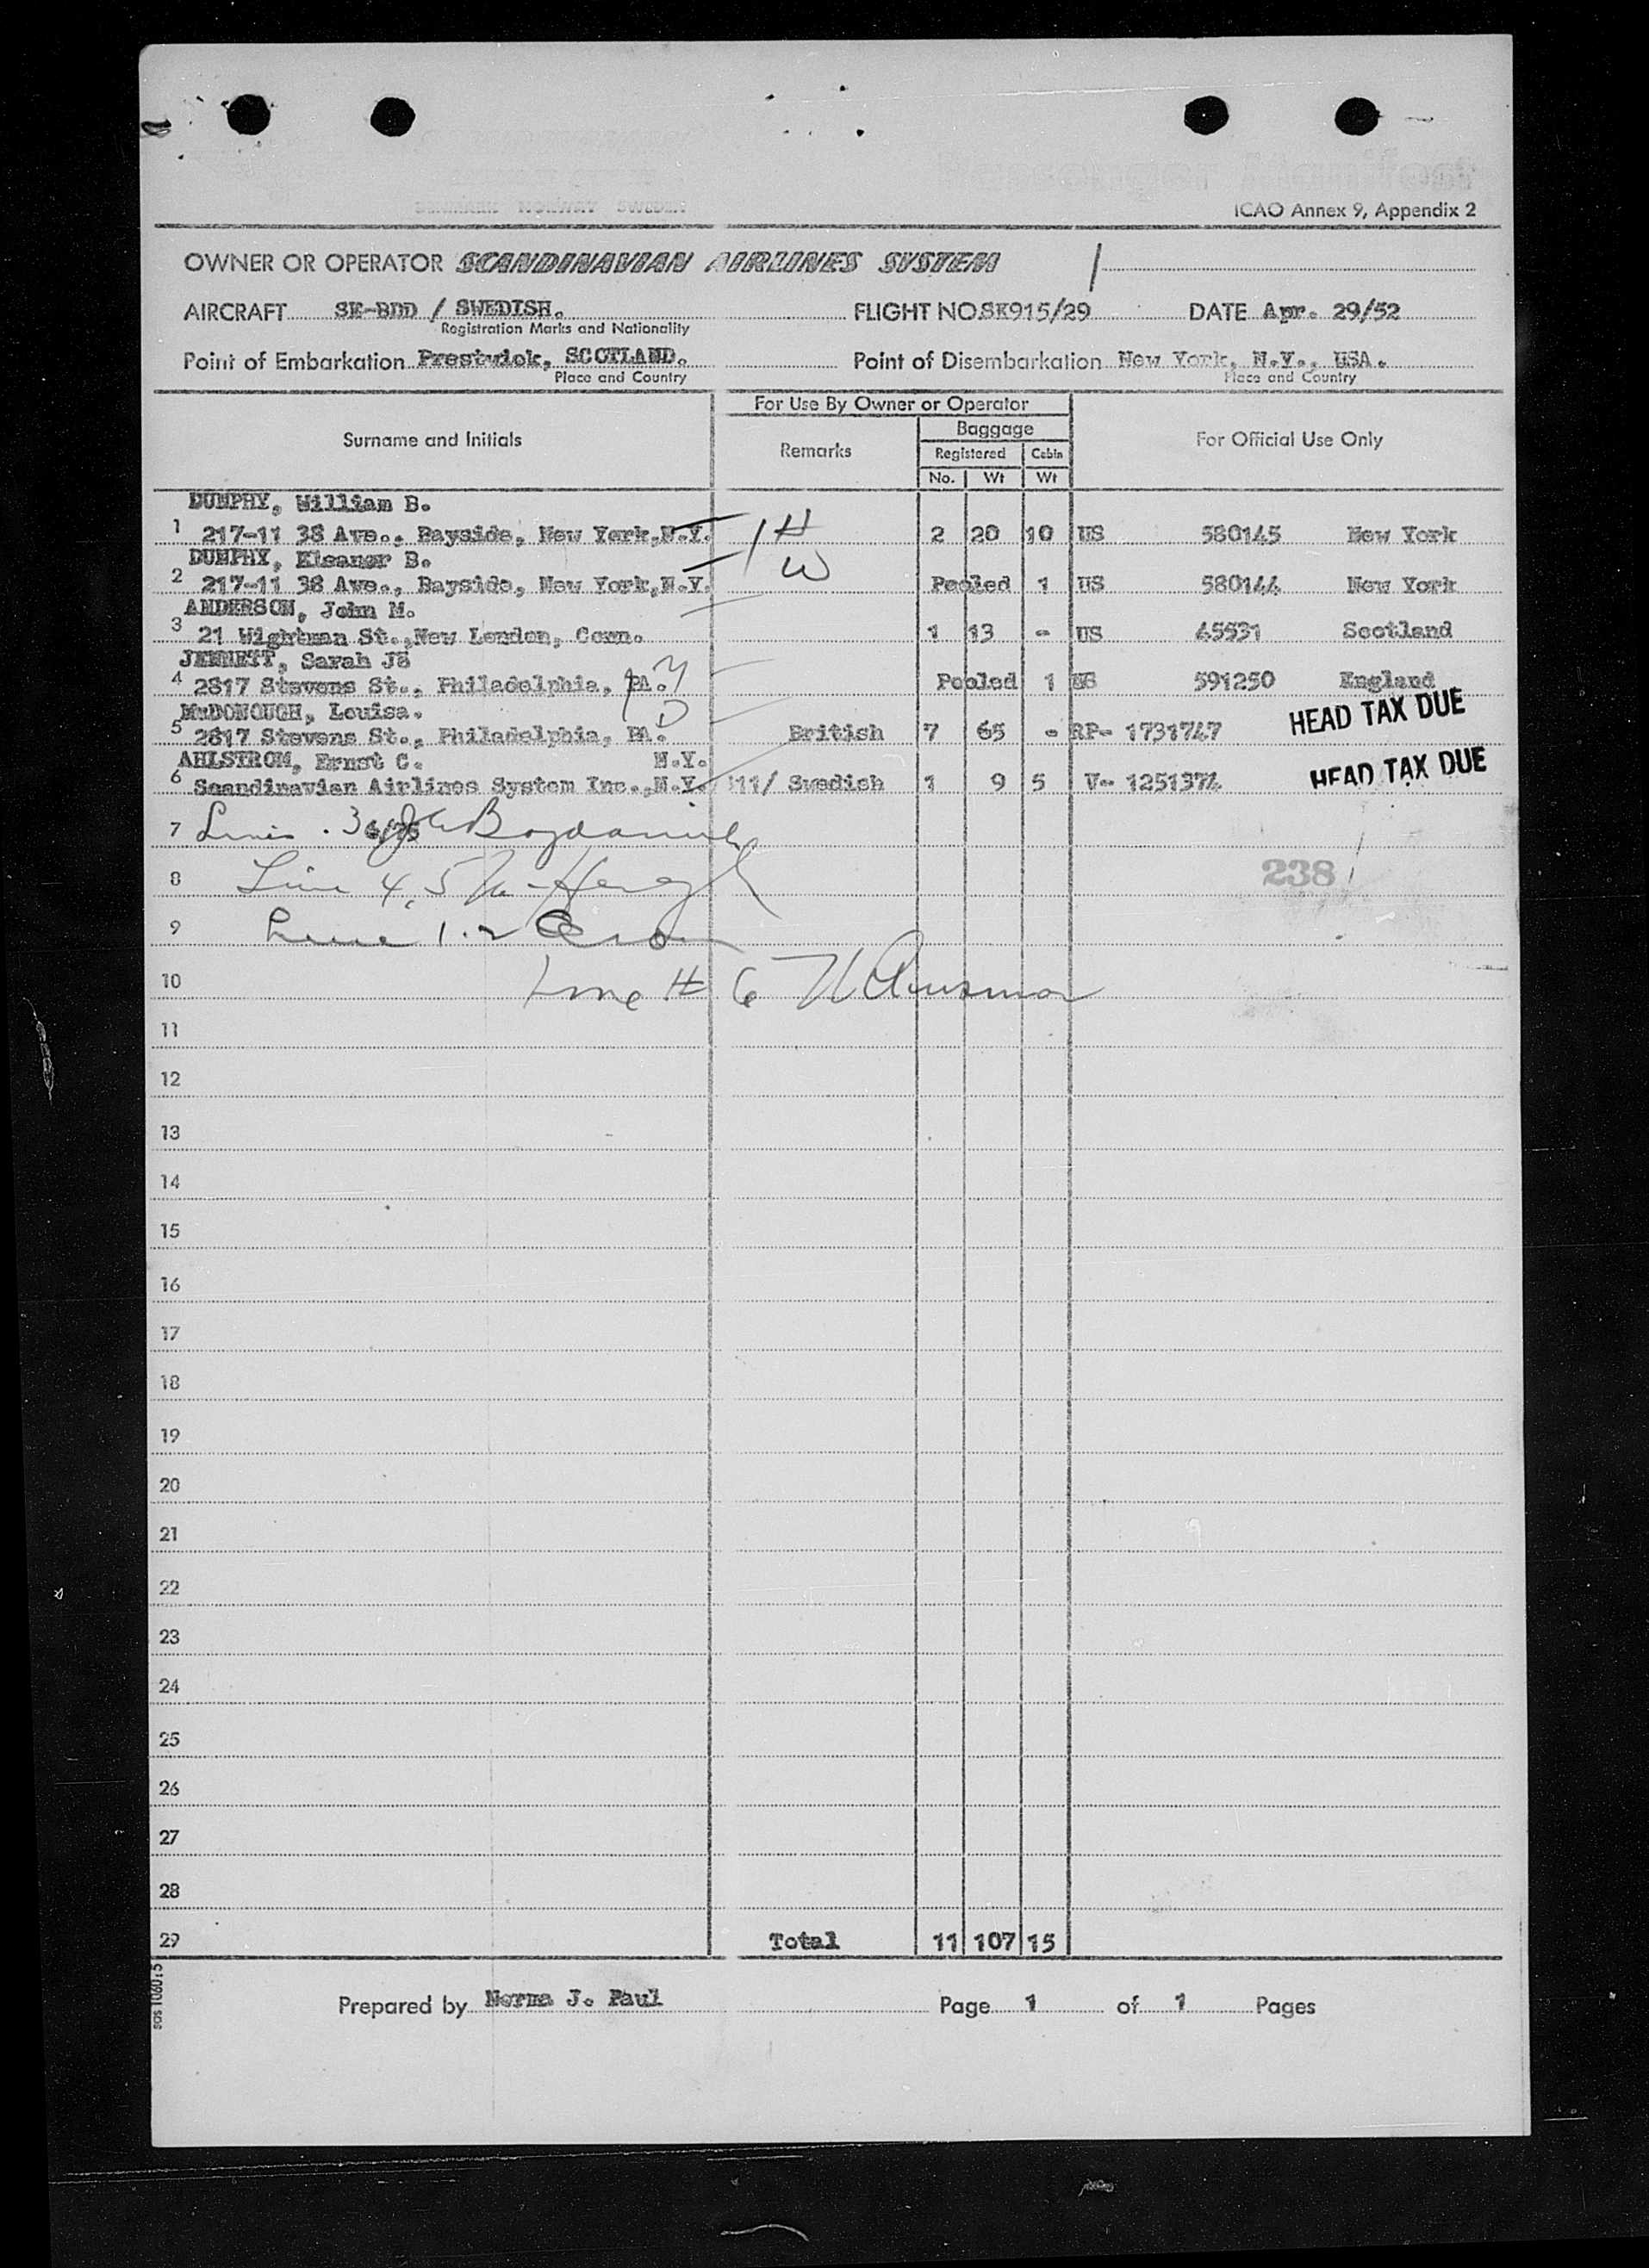 ICAO Annex 9, Appendix 2
OWNER OR OPERATOR SCANDINAVIAN AIRLINES SYSTEM
AIRCRAFT SE-BDD / SWEDISH. FLIGHT NO. SK915/29 DATE Apr. 29/52
Registration Marks and Nationality
Point of Embarkation Prestwick, SCOTLAND. Point of Disembarkation New York, N.Y., USA.
Place and Country Place and Country
For Use By Owner or Operator
Surname and Initials Remarks Baggage For Official Use Only
Registered Cabin
No. Wt Wt
DUMPHY, William B.
1 217-11 38 Ave., Bayside, New York, N.Y. 1 H 2 20 10 US 580145 New York
DUMPHY, Eleanor B.
2 217-11 38 Ave., Bayside, New York, N.Y. W Pooled 1 US 580144 New York
ANDERSON, John M.
3 21 Wightman St., New London, Conn. 1 13 - US 45931 Scotland
JENNETT, Sarah JS
4 2817 Stevens St., Philadelphia, PA. M Pooled 1 US 591250 England
McDONOUGH, Louisa. D
5 2817 Stevens St., Philadelphia, PA. British 7 65 - RP- 1731747 HEAD TAX DUE
AHLSTROM, Ernst C. N.Y.
6 Scandinavian Airlines System Inc., N.Y. 111/ Swedish 1 9 5 V- 1251374 HEAD TAX DUE
7 3
8 Line 4, 5 238
9 Line 1.2
10 Line # 6
11
12
13
14
15
16
17
18
19
20
21
22
23
24
25
26
27
28
29 Total 11 107 15
sas 1060:5
Prepared by Norma J. Paul Page 1 of 1 Pages